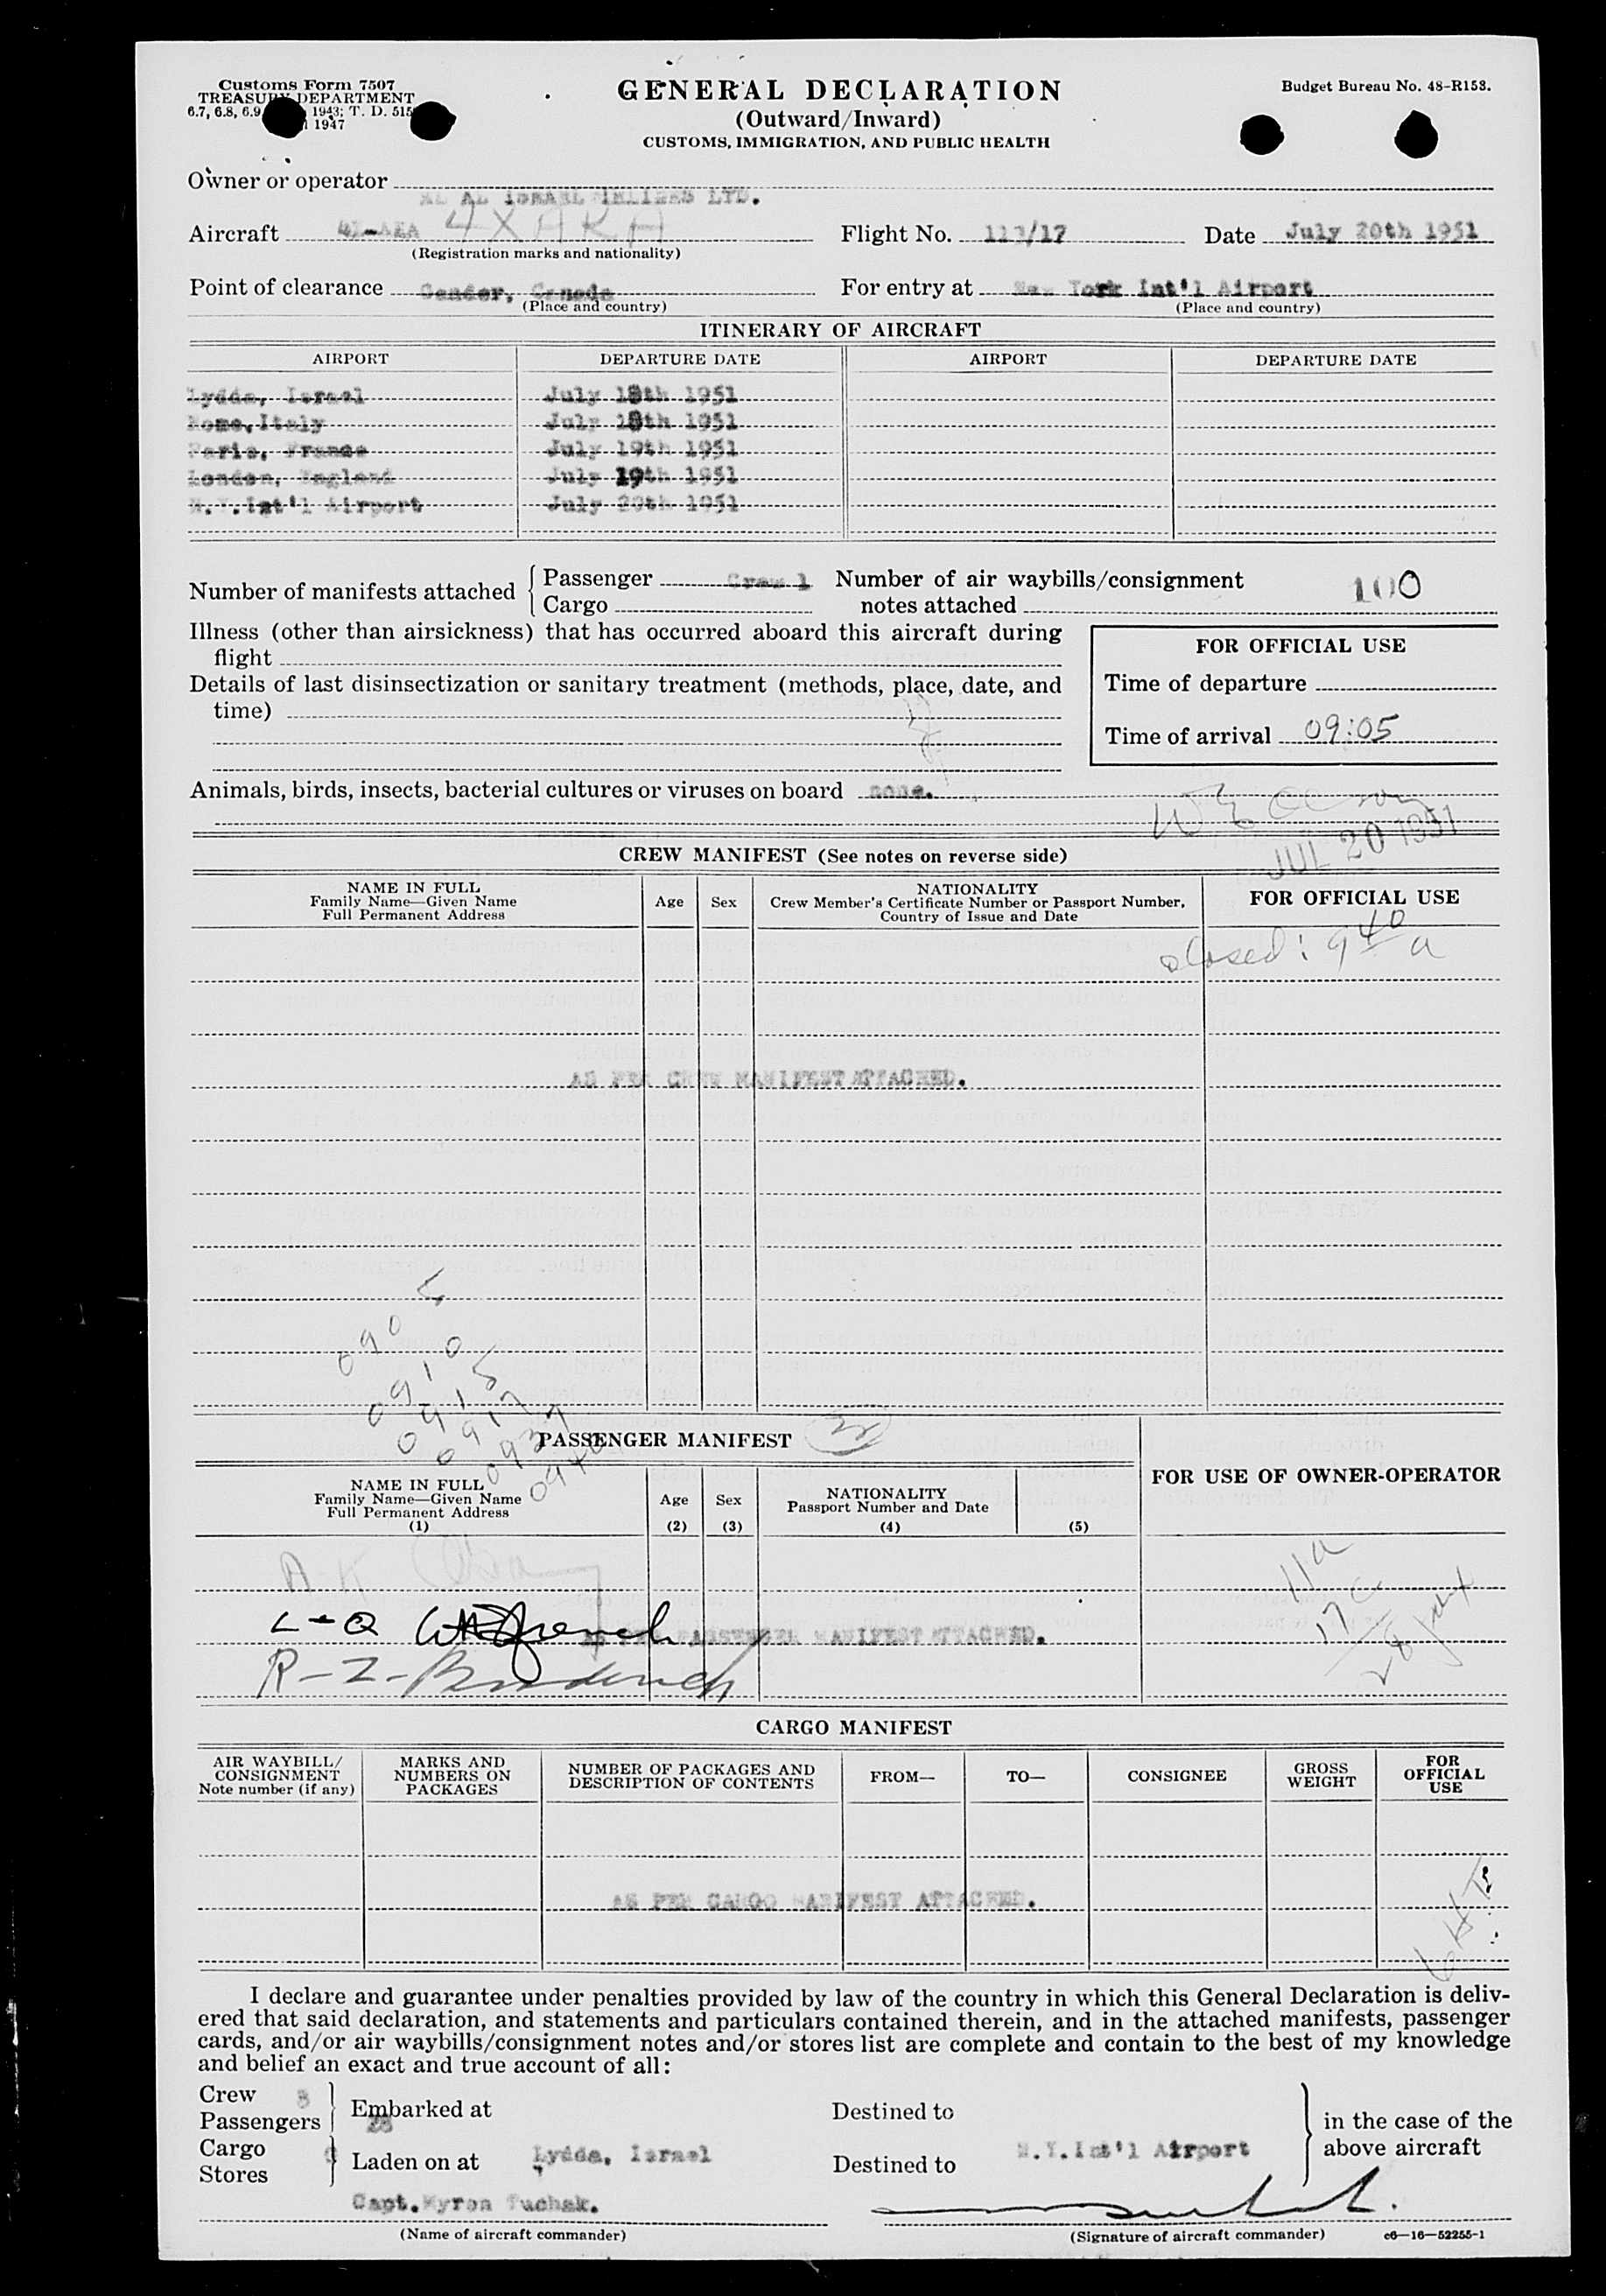 Customs Form 7507
TREASURY DEPARTMENT
6.7, 6.8, 6.9 1943; T. D. 515
1947
GENERAL DECLARATION
(Outward/Inward)
CUSTOMS, IMMIGRATION, AND PUBLIC HEALTH
Budget Bureau No. 48-R153.
Owner or operator
EL AL ISRAEL AIRLINES LTD.
Aircraft 4X-AKA 4XAKA Flight No. 113/17 Date July 20th 1951
(Registration marks and nationality)
Point of clearance Gander, Canada For entry at New York Int'l Airport
(Place and country) (Place and country)
ITINERARY OF AIRCRAFT
AIRPORT DEPARTURE DATE AIRPORT DEPARTURE DATE
Lydda, Israel July 18th 1951
Rome, Italy July 18th 1951
Paris, France July 19th 1951
London, England July 19th 1951
N.Y.Int'l Airport July 20th 1951
Number of manifests attached Passenger Crew 1 Number of air waybills/consignment 100
Cargo notes attached
Illness (other than airsickness) that has occurred aboard this aircraft during
flight
FOR OFFICIAL USE
Details of last disinsectization or sanitary treatment (methods, place, date, and
time)
Time of departure
Time of arrival 09:05
Animals, birds, insects, bacterial cultures or viruses on board none.
JUL 20 1951
CREW MANIFEST (See notes on reverse side)
NAME IN FULL
Family Name—Given Name
Full Permanent Address
Age Sex
NATIONALITY
Crew Member's Certificate Number or Passport Number,
Country of Issue and Date
FOR OFFICIAL USE
closed: 9 40 a
AS PER CREW MANIFEST ATTACHED.
0905
0910
0915
0917
0937
0940
PASSENGER MANIFEST
NAME IN FULL
Family Name—Given Name
Full Permanent Address
(1)
Age
(2)
Sex
(3)
NATIONALITY
Passport Number and Date
(4) (5)
FOR USE OF OWNER-OPERATOR
11a
17c
28
A-K
L-Q
AS PER PASSENGER MANIFEST ATTACHED.
R-Z-
CARGO MANIFEST
AIR WAYBILL/
CONSIGNMENT
Note number (if any)
MARKS AND
NUMBERS ON
PACKAGES
NUMBER OF PACKAGES AND
DESCRIPTION OF CONTENTS
FROM—
TO—
CONSIGNEE
GROSS
WEIGHT
FOR
OFFICIAL
USE
AS PER CARGO MANIFEST ATTACHED.
I declare and guarantee under penalties provided by law of the country in which this General Declaration is deliv-
ered that said declaration, and statements and particulars contained therein, and in the attached manifests, passenger
cards, and/or air waybills/consignment notes and/or stores list are complete and contain to the best of my knowledge
and belief an exact and true account of all:
Crew 8
Passengers 28 Embarked at Destined to
in the case of the
above aircraft
Cargo
Stores
Laden on at Lydda, Israel Destined to N.Y.Int'l Airport
Capt. Myron Tuchak.
(Name of aircraft commander) (Signature of aircraft commander) c6—16—52255-1